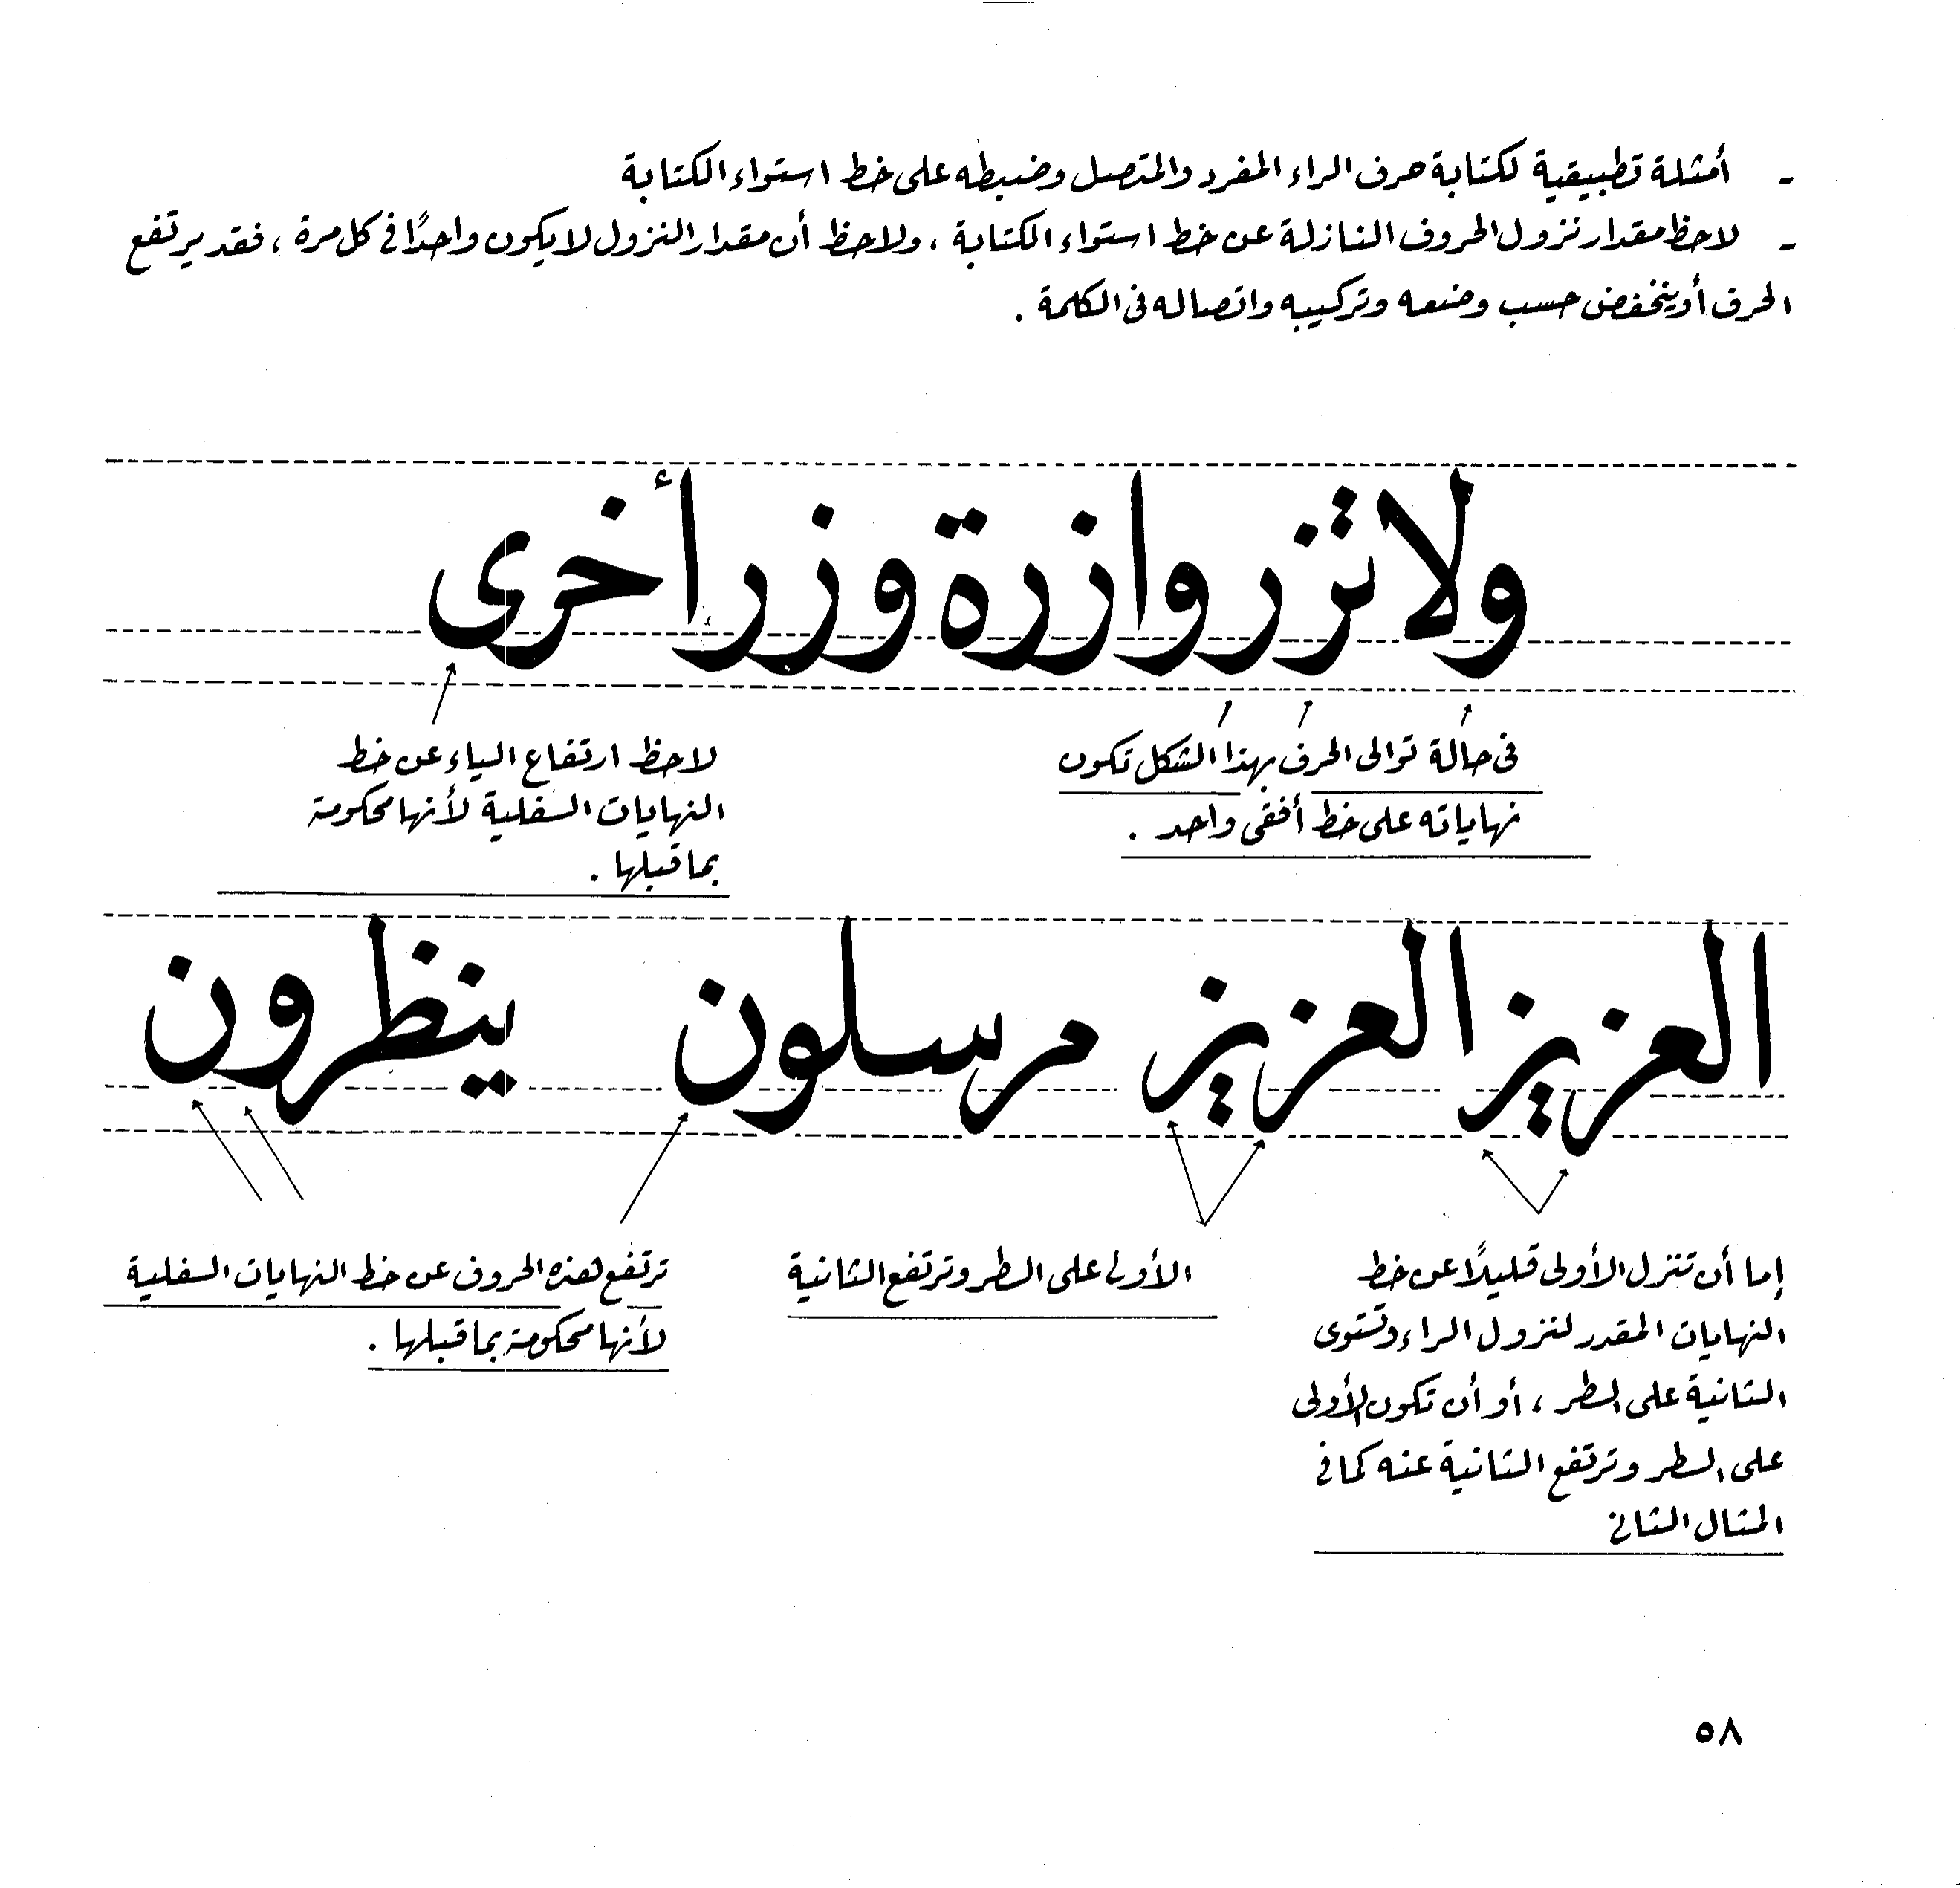 - أمثلة تطبيقية لكتابة حرف الراء المفرد والمتصل وضبطه على خط استواء الكتابة
- لاحظ مقدار نزول الحروف النازلة عن خط استواء الكتابة ، ولاحظ أن مقدار النزول لا يكون واحدًا في كل مرة ، فقد يرتفع
الحرف أو ينخفض حسب وضعه وتركيبه واتصاله في الكلمة .
ولا تزر وازرة وزر أخرى
في حالة توالى الحرف بهذا الشكل تكون
نهاياته على خط أفقى واحد .
لاحظ ارتفاع الياء عن خط
النهايات السفلية لأنها محكومة
بما قبلها .
العزيز العزيز مرسلون ينظرون
إما أن تنزل الأولى قليلًا عن خط
النهايات المقدر لنزول الراء وتستوى
الثانية على السطر ، أو أن تكون الأولى
على السطر وترتفع الثانية عنه كما في
المثال الثاني
الأولى على السطر وترتفع الثانية
ترتفع هذه الحروف عن خط النهايات السفلية
لأنها محكومة بما قبلها .
٥٨